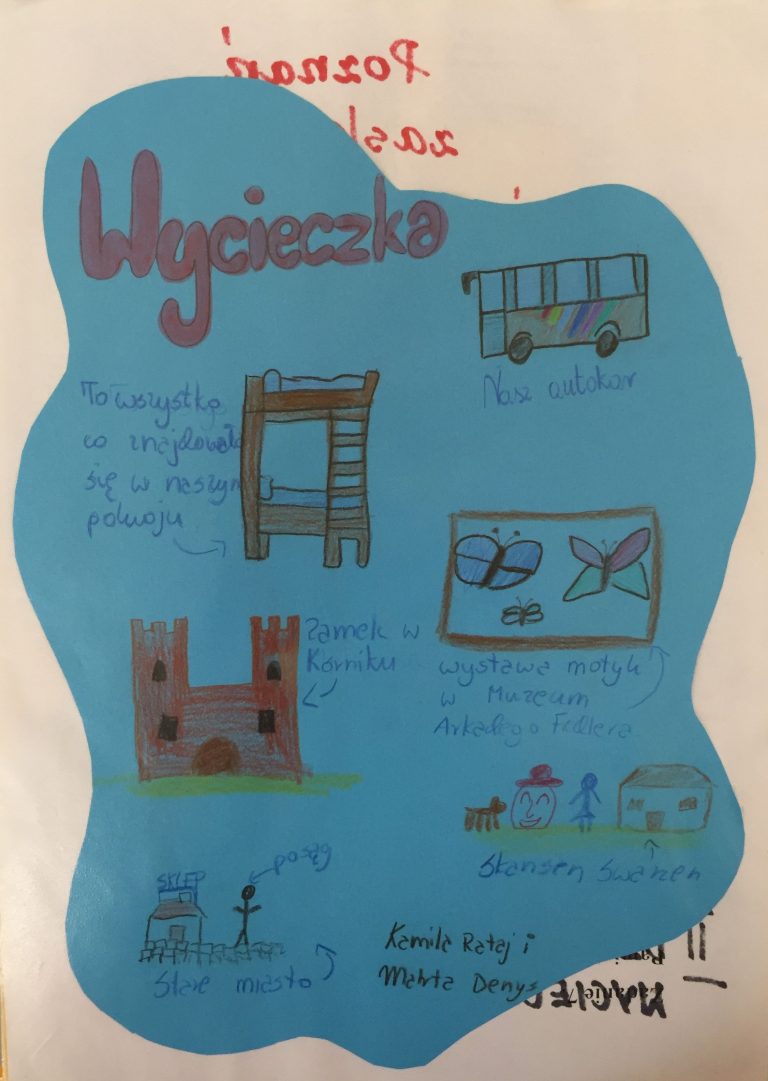 Poznań
Wycieczka
Nasz autokar
To wszystko
co znajdowało
się w naszym
pokoju
Zamek w
Kórniku
wystawa motyli
w Muzeum
Arkadego Fidlera
posąg
SKLEP
Skansen
Stare miasto
Kamila Rataj i
Marta Denys
II